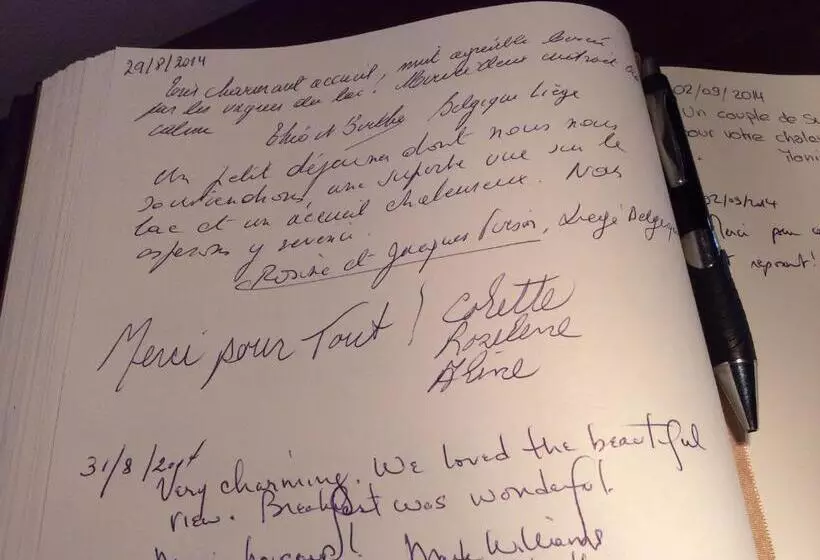 29/8/2014
Très charmant accueil, nuit agréable bercée
par les vagues du lac! Merveilleux endroit
calme Théo et Belgique Liège
Un petit déjeuner dont nous nous
souviendrons, une superbe vue sur le
lac et un accueil chaleureux. Nous
espérons y revenir.
Rosine et Jacques Liège Belgique
Merci pour Tout! Colette
Roselene
Aline
31/8/2014
Very charming. We loved the beautiful
view. Breakfast was wonderful.
Mark Williams
02/09/2014
Un couple de
pour votre
02/09/2014
Merci pour